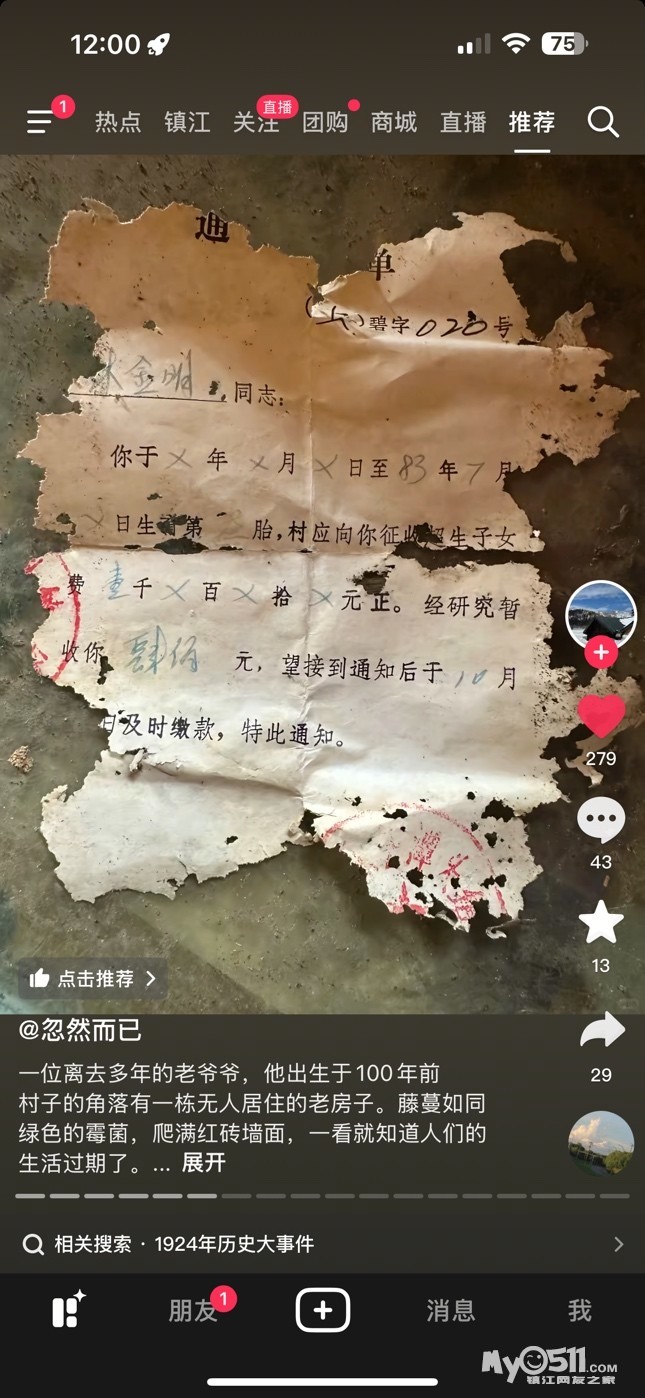 12:00
75
1
热点 镇江 关注 直播 团购 商城 直播 推荐
通 单
碧字020号
金明 同志：
你于×年×月×日至83年7月
×日生育第 胎，村应向你征收超生子女
费壹千×百×拾×元正。经研究暂
收你肆佰元，望接到通知后于10月
日及时缴款，特此通知。
279
43
13
点击推荐
29
@忽然而已
一位离去多年的老爷爷，他出生于100年前
村子的角落有一栋无人居住的老房子。藤蔓如同
绿色的霉菌，爬满红砖墙面，一看就知道人们的
生活过期了。... 展开
相关搜索 · 1924年历史大事件
朋友 1 消息 我
My0511.COM
镇江网友之家